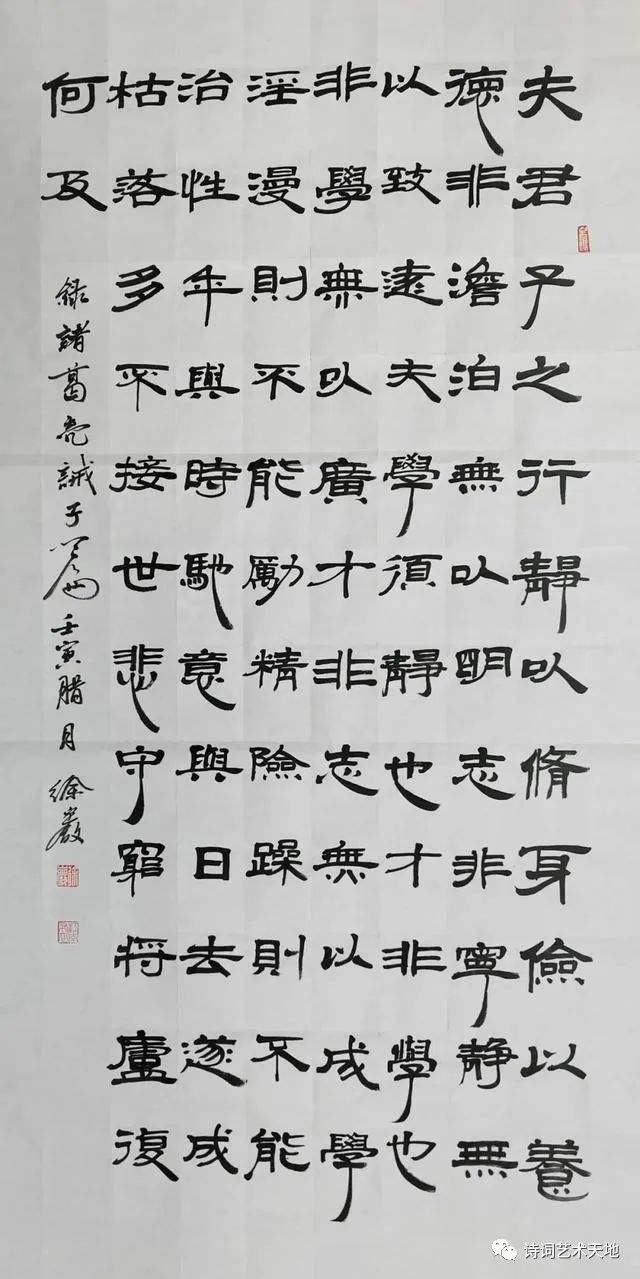 夫君子之行靜以脩身儉以養
德非澹泊無以明志非寧靜無
以致遠夫學須靜也才非學也
非學無以廣才非志無以成學
淫漫則不能勵精險躁則不能
治性年與時馳意與日去遂成
枯落多不接世悲守窮將廬復
何及
錄諸葛亮誡子篇壬寅腊月徐
诗词艺术天地